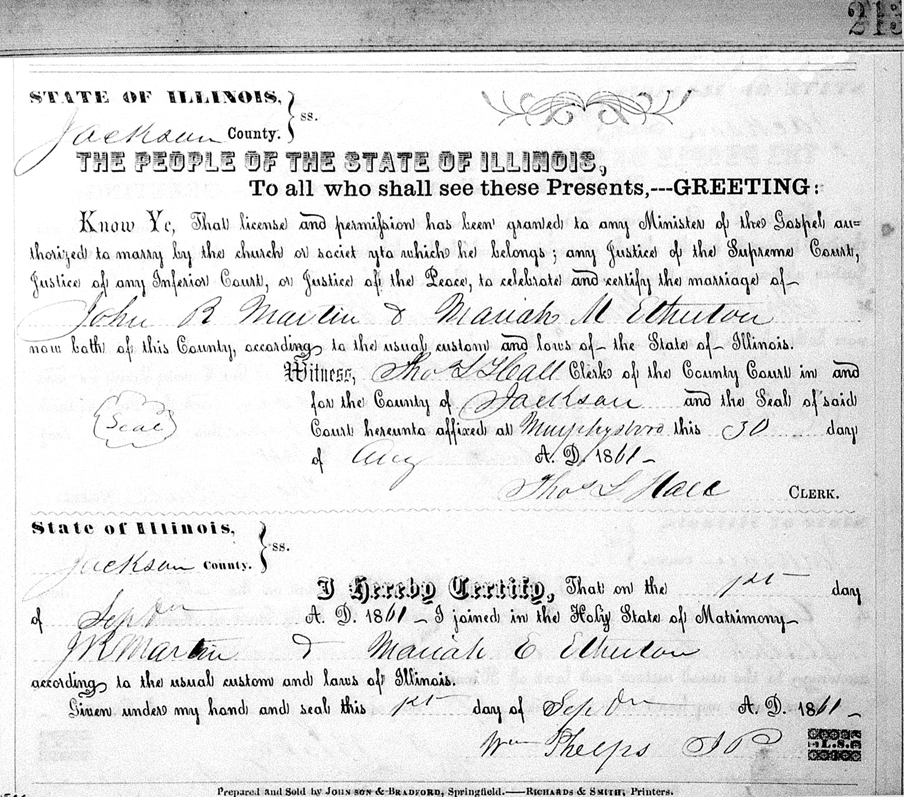 213
STATE OF ILLINOIS, } ss.
Jackson County.
THE PEOPLE OF THE STATE OF ILLINOIS,
To all who shall see these Presents,---GREETING:
Know Ye, That license and permission has been granted to any Minister of the Gospel au=
thorized to marry by the church or societ yto which he belongs; any Justice of the Supreme Court,
Justice of any Inferior Court, or Justice of the Peace, to celebrate and certify the marriage of
John R Martin & Mariah M Etherton
now both of this County, according to the usual custom and laws of the State of Illinois.
Witness, Thos L Hall Clerk of the County Court in and
for the County of Jackson and the Seal of said
Seal
Court hereunto affixed at Murphysboro this 30 day
of Aug A. D. 1861
Thos L Hall CLERK.
State of Illinois, } ss.
Jackson County.
I Hereby Certify, That on the 1st day
of Sep A. D. 1861 I joined in the Holy State of Matrimony
JR Martin & Mariah E Etherton
according to the usual custom and laws of Illinois.
Given under my hand and seal this 1st day of Sep A. D. 1861
Wm Phelps J P L.S.
Prepared and Sold by JOHNSON & BRADFORD, Springfield.——RICHARDS & SMITH, Printers.